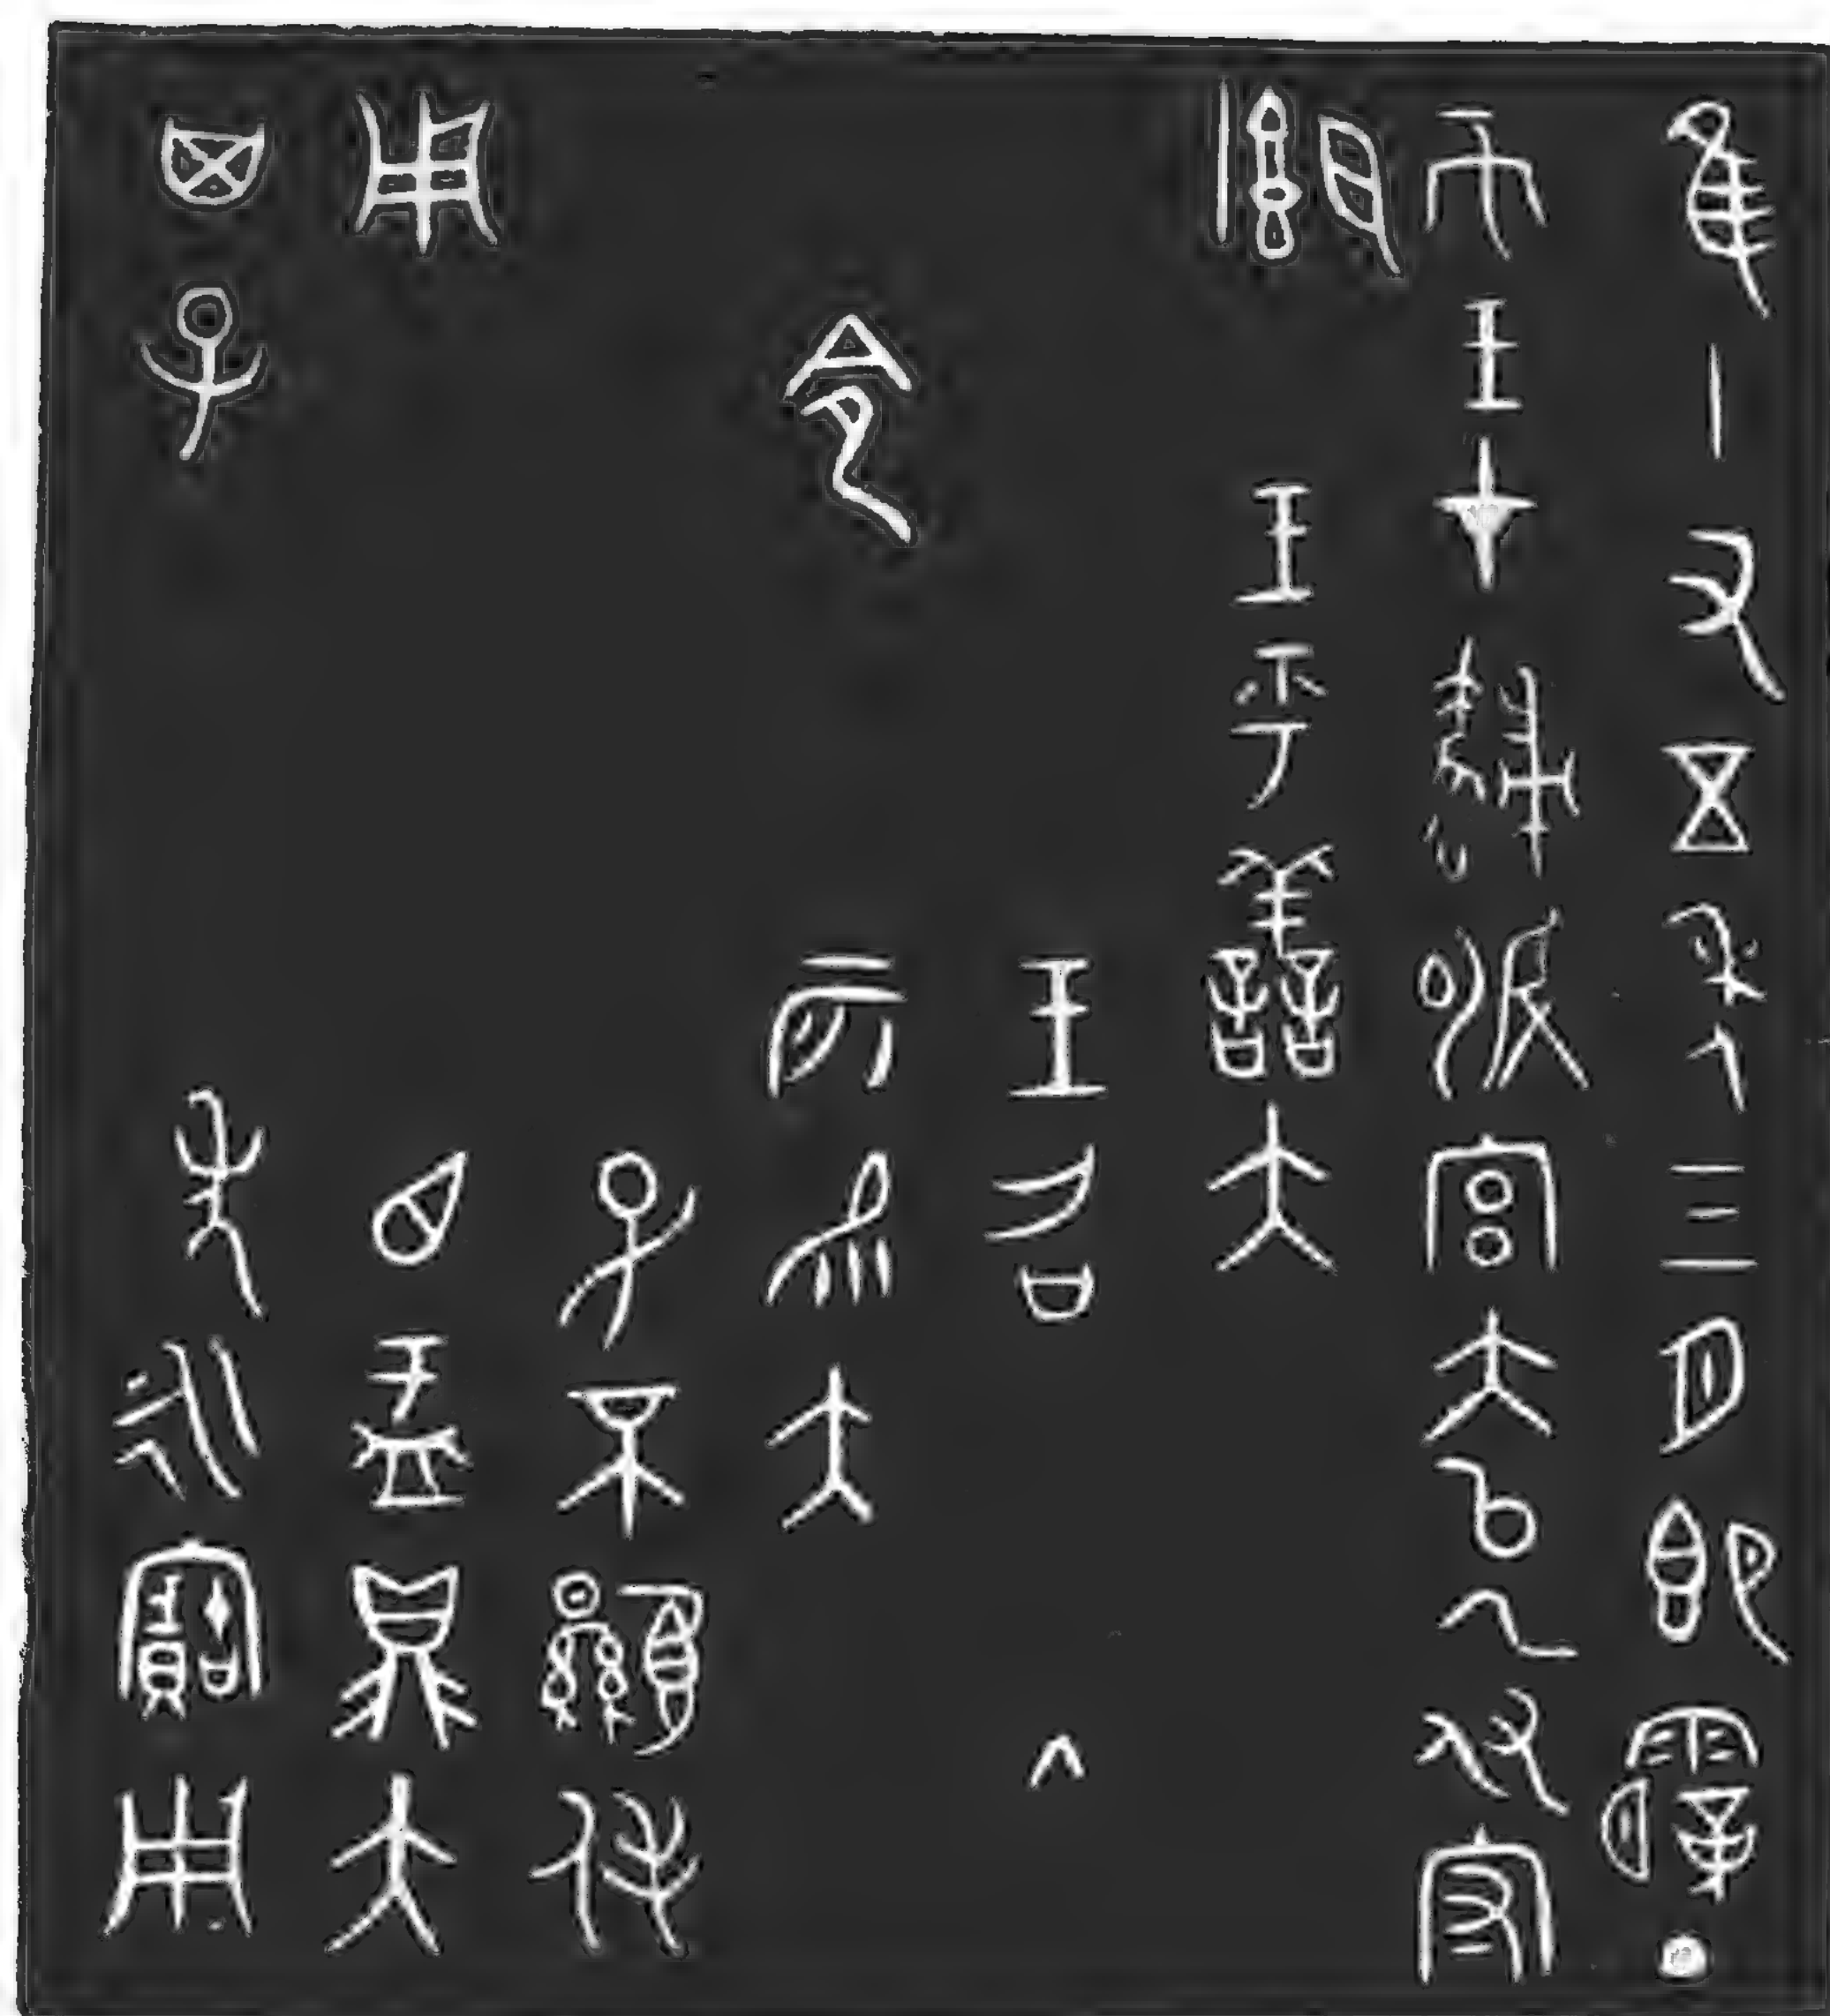 隹十又五年三月既霸丁
亥王才侲宮大㠯氒友守
王乎善大
王召入
令二匹易大
子不顯休
用白盂鼎大
其子年永寶用